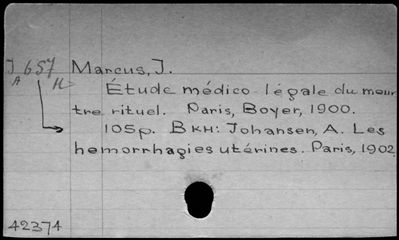 J 657 Marcus, J.
A H Étude médico légale du meur
tre rituel. Paris, Boyer, 1900.
105p. BKH: Johansen, A. Les
hemorrhagies utérines. Paris, 1902
42374